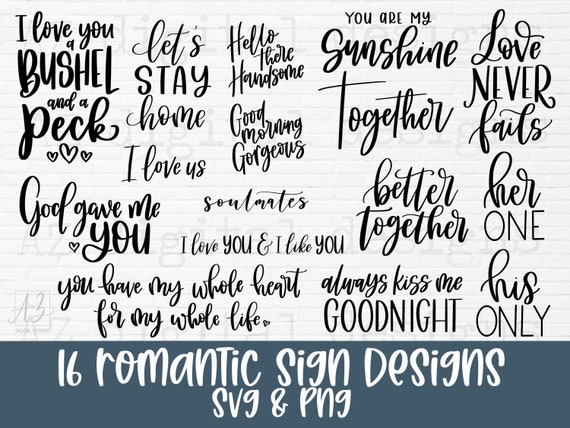 I love you
a
BUSHEL
and a
Peck
let's
STAY
home
Hello
there
Handsome
YOU ARE MY
Sunshine
Love
NEVER
fails
Good
morning
Gorgeous
Together
I love us
God gave me
YOU
soulmates
better
together
her
ONE
I love YOU & I like YOU
you have my whole heart
for my whole life.
always kiss me
GOODNIGHT
his
ONLY
AZ
16 Romantic Sign Designs
SVG & PNG